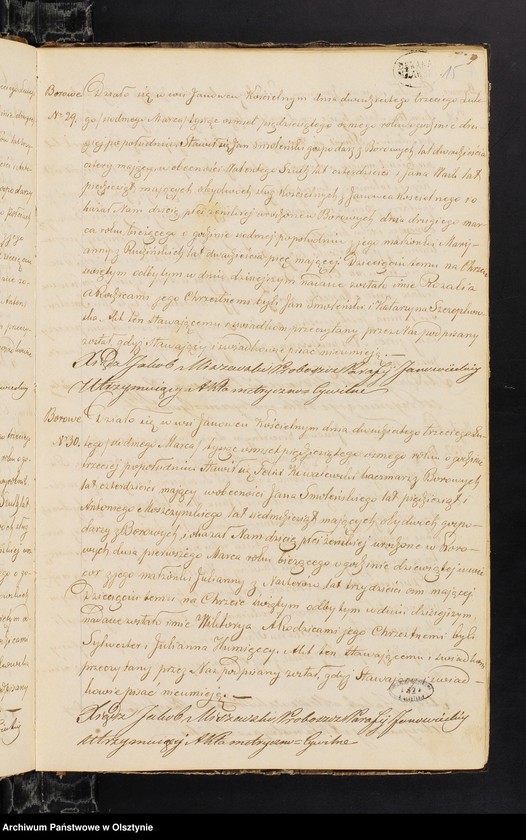 15
Borowe Działo się w wsi Janowcu Kościelnym dnia dwudziestego trzeciego Lute
Nº 29. go/siodmego Marca/ tysiąc osmset pięćdziesiątego osmego roku o godzinie dru
giey popołudniu Stawił się Jan Smoleński gospodarz z Borowych lat dwadzieścia
cztery mający w obecności lat czterdzieści i Jana lat
pięćdziesiąt mających obydwoch sług Kościelnych z Janowca Kościelnego i o
kazał Nam dziecię płci żenskiej urodzone w Borowych dnia drugiego mar
ca roku bieżącego o godzinie siodmej popołudniu z jego małżonki Mary
anny z lat dwadzieścia pięć mającej Dziecięciu temu na Chrzcie
świętym odbytym w dniu dzisiejszym nadane zostało imie Rozalia
a Rodzicami jego Chrzestnemi byli Jan Smoleński i Katarzyna
ska. Akt ten stawającemu i swiadkom przeczytany przez Nas podpisany
został, gdyż Stawający i swiadkowie pisać nieumieją. —
Xiądz Jakob Miszewski Proboszcz Parafij Janowieckiej
Utrzymujący Akta metryczno Cywilne
Borowe Działo się w wsi Janowcu Kościelnym dnia dwudziestego trzeciego Lu
Nº 30. tego/siodmego Marca/ tysiąc osmset pięćdziesiątego osmego roku o godzinie
trzeciej popołudniu Stawił się Felix Kowalewski karczmarz z Borowych
lat czterdzieści mający w obecności Jana Smoleńskiego lat pięćdziesiąt i
Antoniego Moszczyńskiego lat siedmdziesiąt mających obydwoch gospo-
darzy z Borowych i okazał Nam dziecię płci żenskiej urodzone w Boro-
wych dnia pierwszego Marca roku bieżącego o godzinie dziewiątej w wie
czor z jego małżonki Julianny z lat trzydzieści osm mającej
Dziecięciu temu na Chrzcie świętym odbytym w dniu dzisiejszym
nadane zostało imie Wiktorya A Rodzicami jego Chrzestnemi byli
Sylwester i Julianna Akt ten stawającemu i swiadkom
przeczytany przez Nas podpisany został, gdyż Stawający i swiad-
kowie pisać nieumieją. —
Xiądz Jakob Miszewski Proboszcz Parafij Janowieckiej
Utrzymujący Akta metryczno-Cywilne
Archiwum Państwowe w Olsztynie